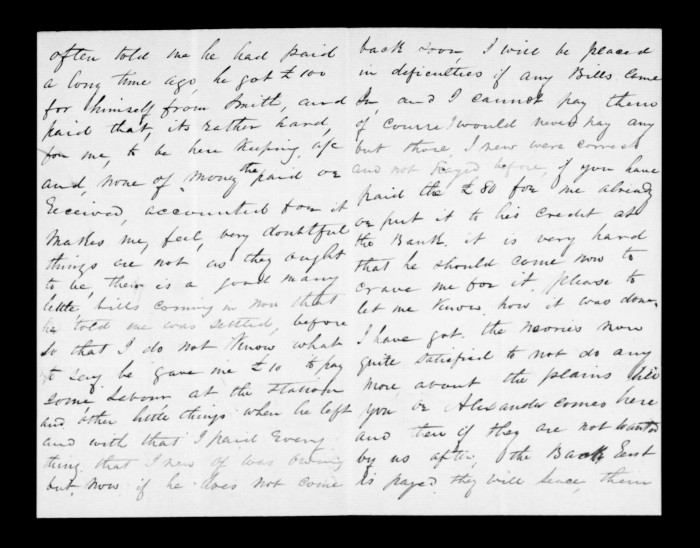 often told me he had paid
a long time ago, he got £100
for himself from Smith, and
paid that, its rather hard,
for me, to be here Keeping a/c
and, none of money the paid or
Received, accounted for it
Makes me, feel, very doubtful
things are not as they ought
to be, their is a good many
little, bills coming in now that
he told me was settled, before
so that I do not Know what
to say he gave me £10 to pay
some Labour at the station
and other little things when he left
and with that I paid Every
thing that I new of was owing
but now if he does not come
back soon, I will be placed
in dificulties if any Bills Come
In, and I cannot pay them
of course I would never pay any
but those, I new were correct
and not Payed before, if you have
paid the £80 for me already
or put it to his credit at
the Bank. it is very hard
that he should come now to
crave me for it, please to
let me Know how it was done.
I have got the Mories now
quite satisfied to not do any
more about the plains till
you or Alexander comes here
and then if they are not wanted
by us after, the Back Rent
is payed they will leave, them